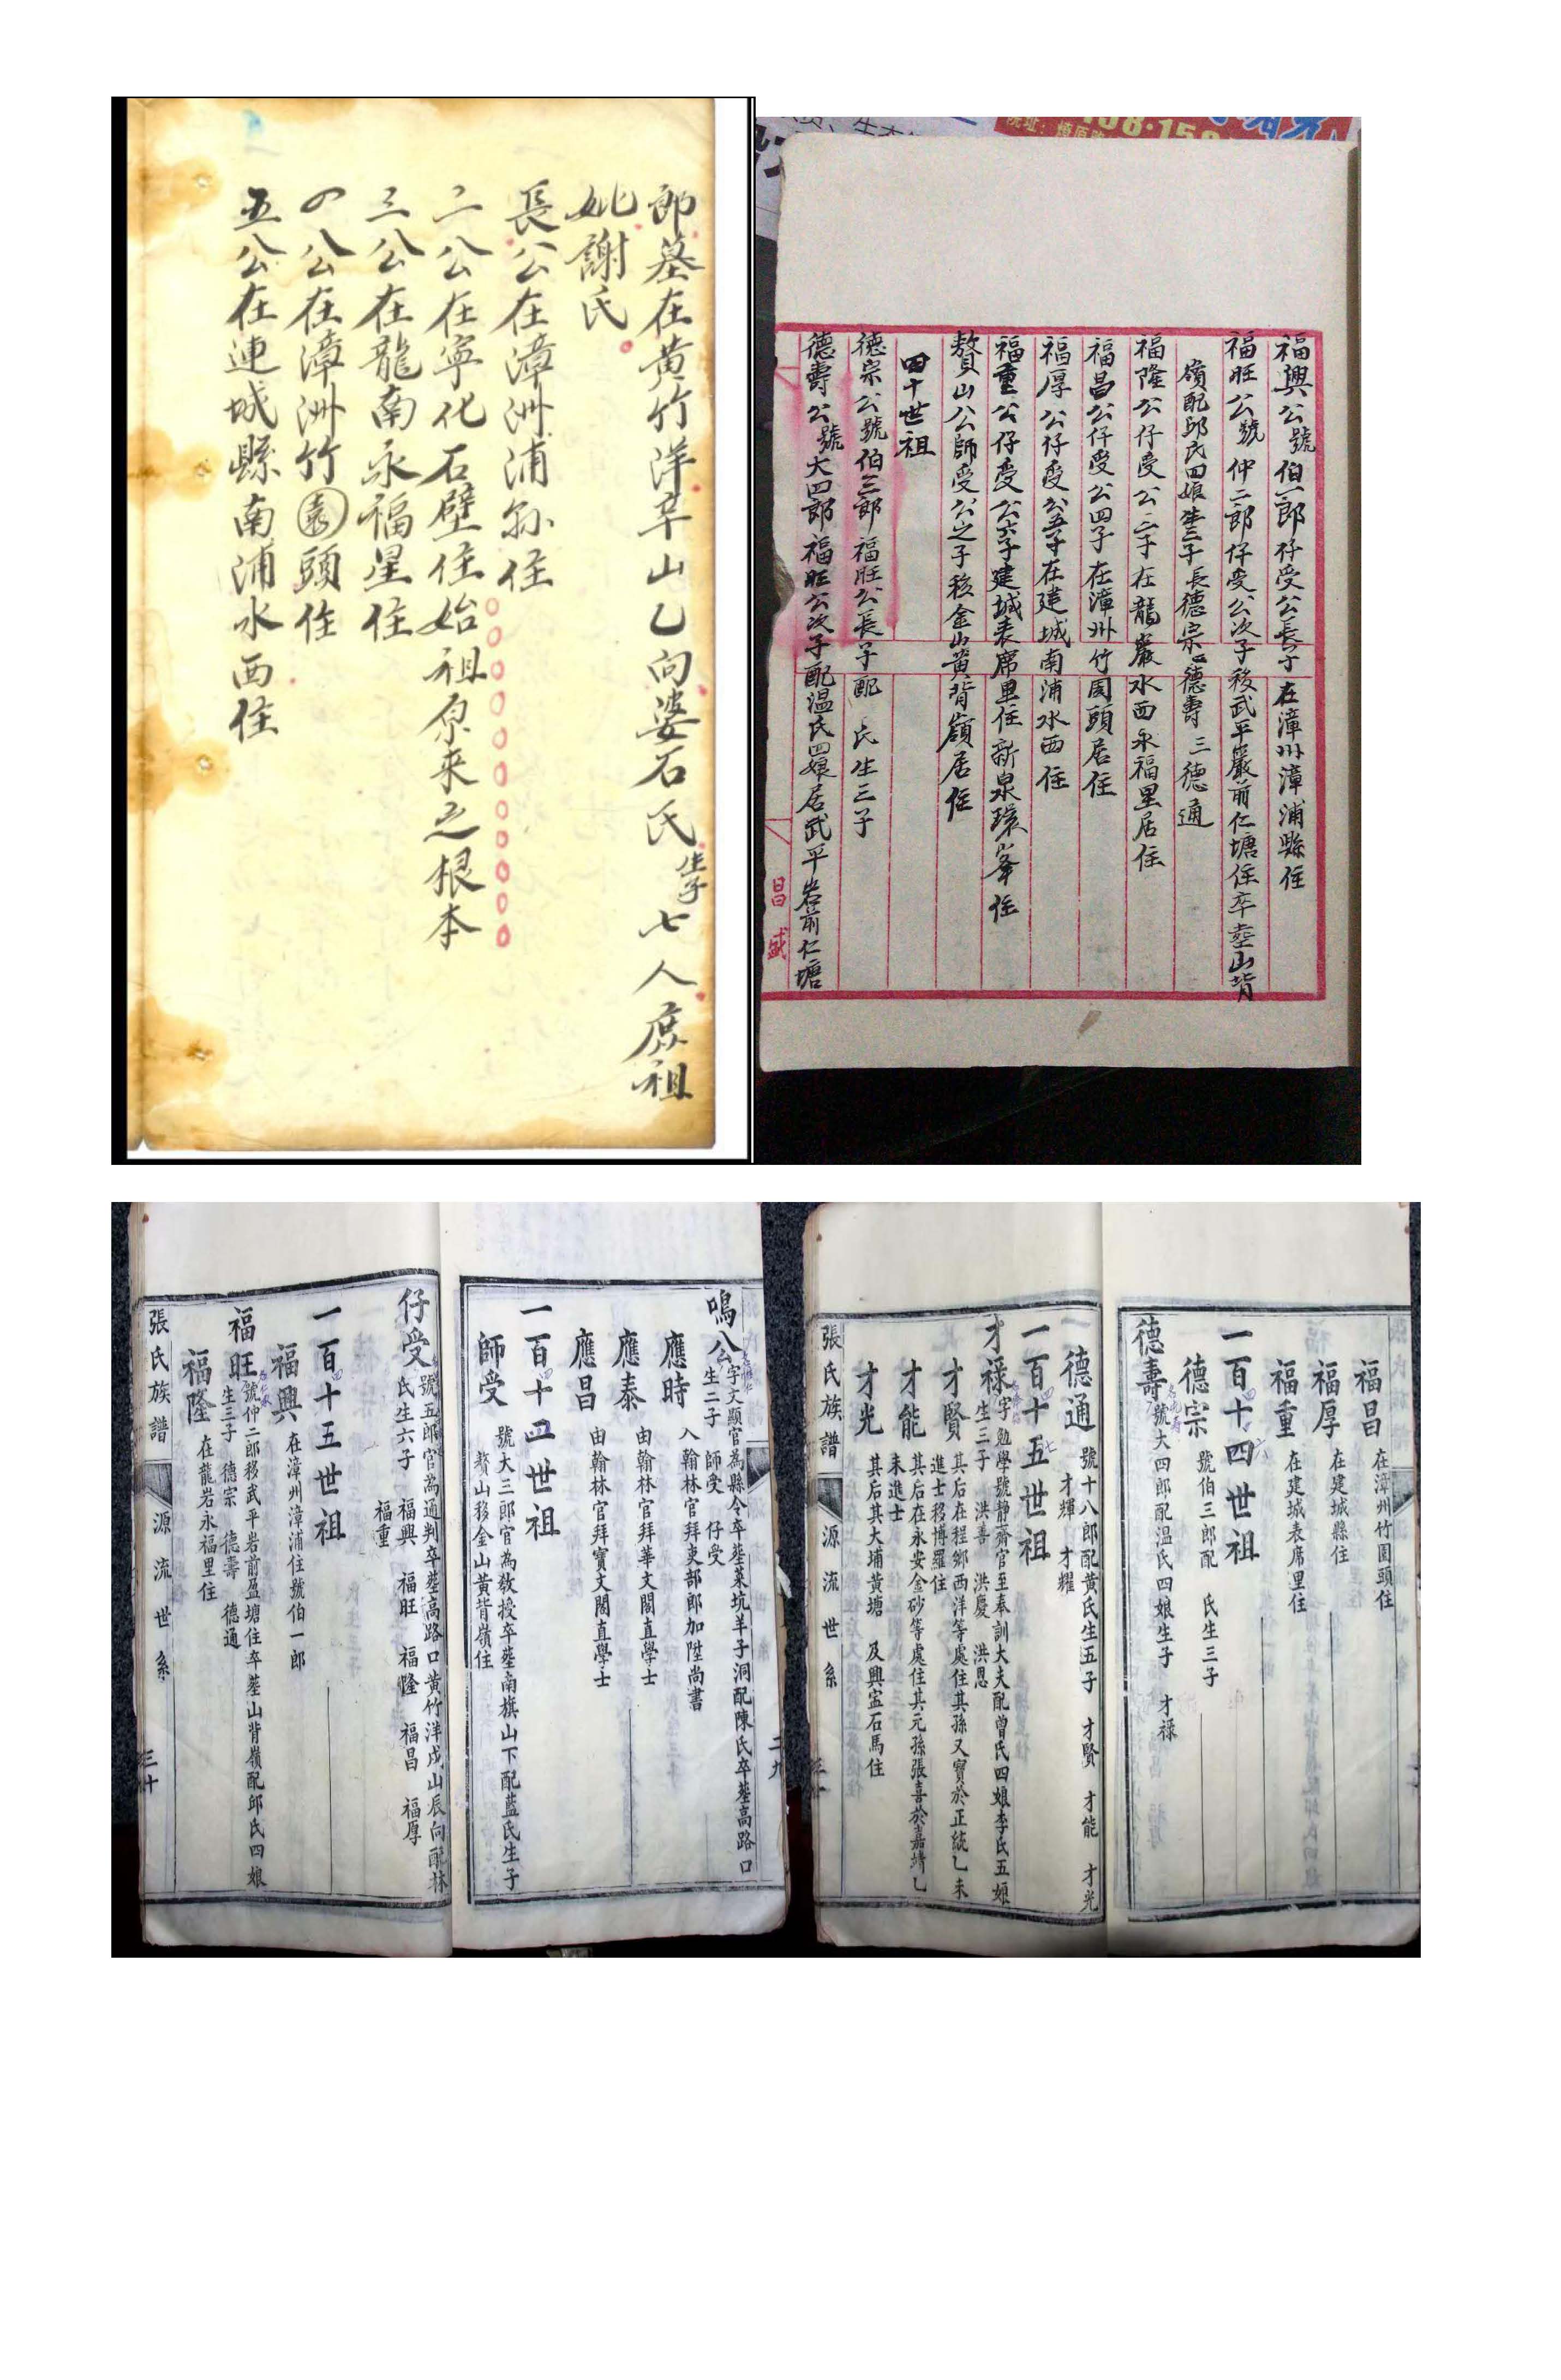 郎墓在黄竹洋辛山乙向婆石氏生子七人庶祖
妣謝氏
長公在漳洲浦縣住
二公在寧化石壁住始祖原来之根本
三公在龍南永福里住
四公在漳洲竹園頭住
五公在連城縣南浦水西住
福興公號伯一郎仔受公長子在漳州漳浦縣住
福旺公號仲二郎仔受公次子移武平巖前仁塘住卒塟山背
嶺配邱氏四娘生三子長德宗二德壽三德通
福隆公仔受公三子在龍巖水西永福里居住
福昌公仔受公四子在漳州竹园頭居住
福厚公仔受公五子在建城南浦水西住
福重公仔受公六子建城表席里住新泉環峯住
贅山公師受公之子移金山黄背嶺居住
四十世祖
德宗公號伯三郎福旺公長子配 氏生三子
德壽公號大四郎福旺公次子配温氏四娘居武平岩前仁塘
昌盛
鳴公字文顯官為縣令卒塟菜坑羊子洞配陳氏卒塟高路口
生二子 師受 仔受
應時 入翰林官拜吏部郎加陞尚書
應泰 由翰林官拜華文閣直學士
應昌 由翰林官拜寶文閣直學士
一百十四世祖
師受 號大三郎官為教授卒塟南旗山下配藍氏生子
贅山移金山黄背嶺住
二九
仔受 號五郎官為通判卒塟高路口黄竹洋戌山辰向配林
氏生六子 福興 福旺 福隆 福昌 福厚
福重
一百十五世祖
福興 在漳州漳浦住號伯一郎
福旺 號仲二郎移武平岩前盈塘住卒塟山背嶺配邱氏四娘
生三子 德宗 德壽 德通
福隆 在龍岩永福里住
張氏族譜 源流世系 三十
福昌 在漳州竹園頭住
福厚 在建城縣住
福重 在建城表席里住
一百十四世祖
德宗 號伯三郎配 氏生三子
德壽 號大四郎配温氏四娘生子 才禄
德通 號十八郎配黄氏生五子 才賢 才能 才光
才輝 才耀
一百十五世祖
才禄 字勉學號静齋官至奉訓大夫配曾氏四娘李氏五娘
生三子 洪善 洪慶 洪恩
才賢 其后在程鄉西洋等處住其孫又寶於正統乙未
進士移博羅住
才能 其后在永安金砂等處住其元孫張喜於嘉靖乙
未進士
才光 其后其大埔黄塘 及興寍石馬住
張氏族譜 源流世系